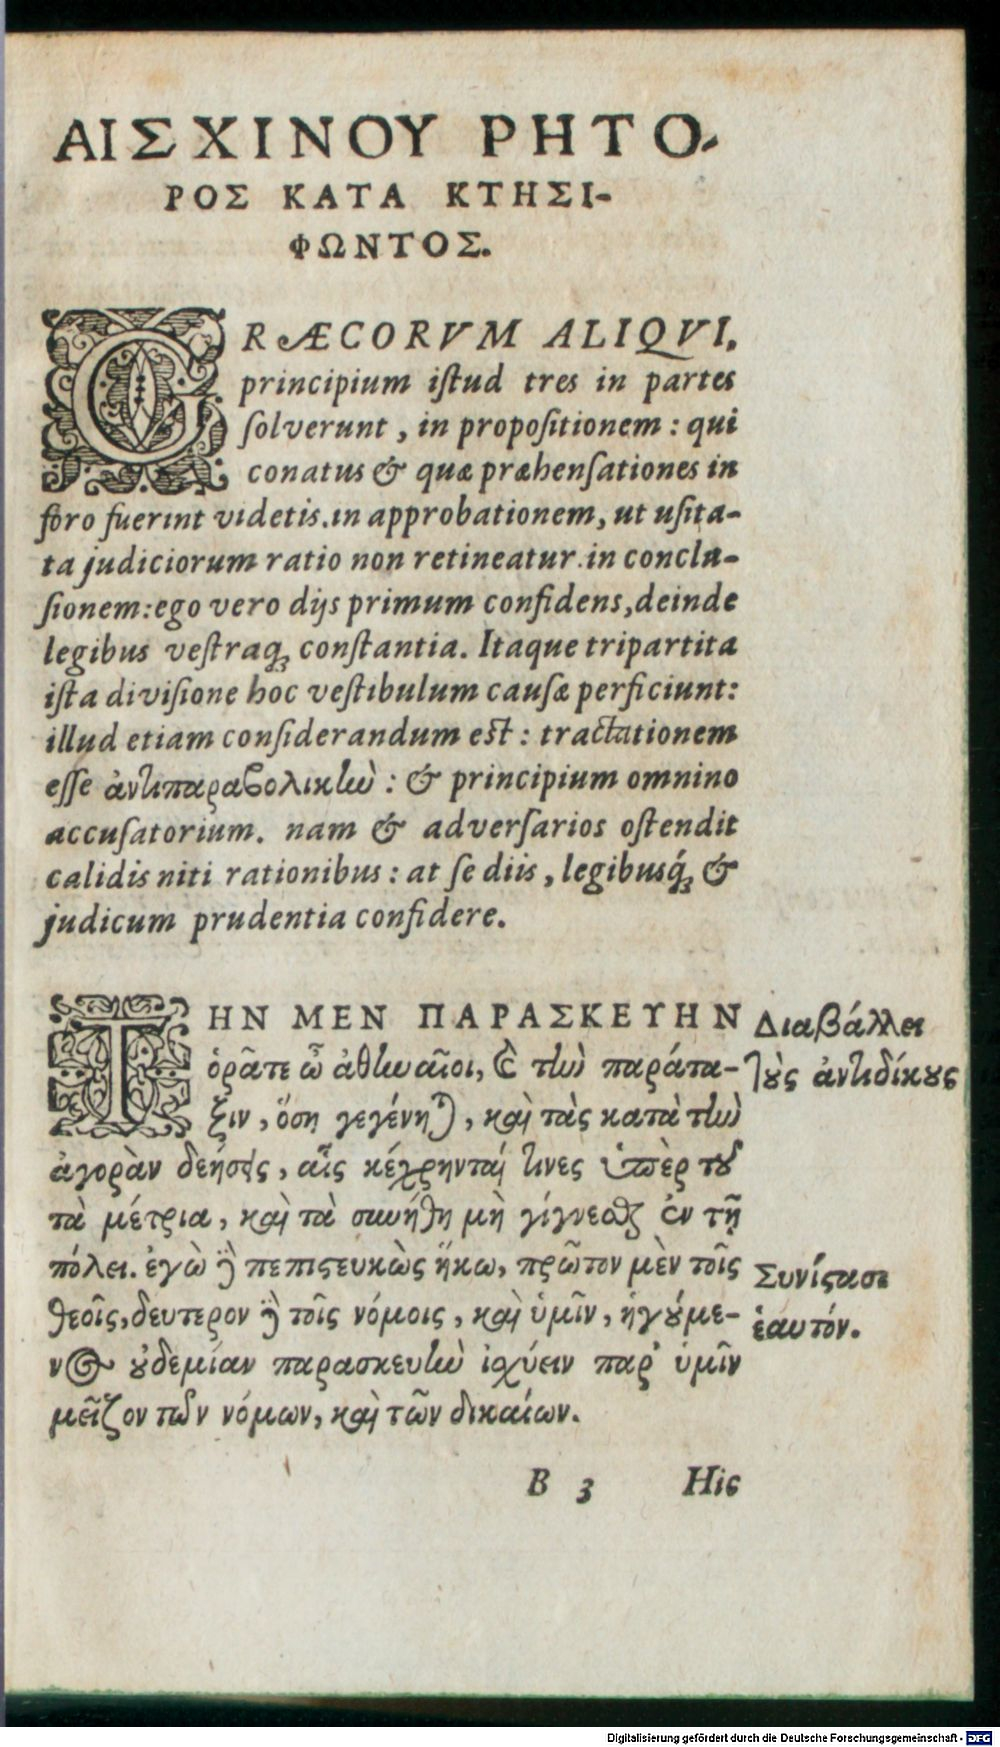 ΑΙΣΧΙΝΟΥ ΡΗΤΟ-
ΡΟΣ ΚΑΤΑ ΚΤΗΣΙ-
ΦΩΝΤΟΣ.
GRÆCORVM ALIQVI.
principium istud tres in partes
solverunt, in propositionem: qui
conatus & quæ præhensationes in
foro fuerint videtis. in approbationem, ut usita-
ta judiciorum ratio non retineatur. in conclu-
sionem: ego vero dijs primum confidens, deinde
legibus vestraq; constantia. Itaque tripartita
ista divisione hoc vestibulum causæ perficiunt:
illud etiam considerandum est: tractationem
esse ἀντιπαραβολικὴν: & principium omnino
accusatorium. nam & adversarios ostendit
calidis niti rationibus: at se diis, legibusq́; &
judicum prudentia confidere.
ΤΗΝ ΜΕΝ ΠΑΡΑΣΚΕΥΗΝ
ὁρᾶτε ὦ ἀθηναῖοι, καὶ τὴν παράτα-
ξιν, ὅση γεγένηται, καὶ τὰς κατὰ τὴν
ἀγορὰν δεήσεις, αἷς κέχρηνταί τινες ὑπὲρ τοῦ
τὰ μέτρια, καὶ τὰ συνήθη μὴ γίγνεσθαι ἐν τῇ
πόλει. ἐγὼ δὲ πεπιστευκὼς ἥκω, πρῶτον μὲν τοῖς
θεοῖς, δευτερον δὲ τοῖς νόμοις, καὶ ὑμῖν, ἡγούμε-
νος οὐδεμίαν παρασκευὴν ἰσχύειν παρ' ὑμῖν
μεῖζον τῶν νόμων, καὶ τῶν δικαίων.
Διαβάλλει
τοὺς ἀντιδίκους
Συνίστασι
ἑαυτόν.
B 3 His
Digitalisierung gefördert durch die Deutsche Forschungsgemeinschaft - DFG